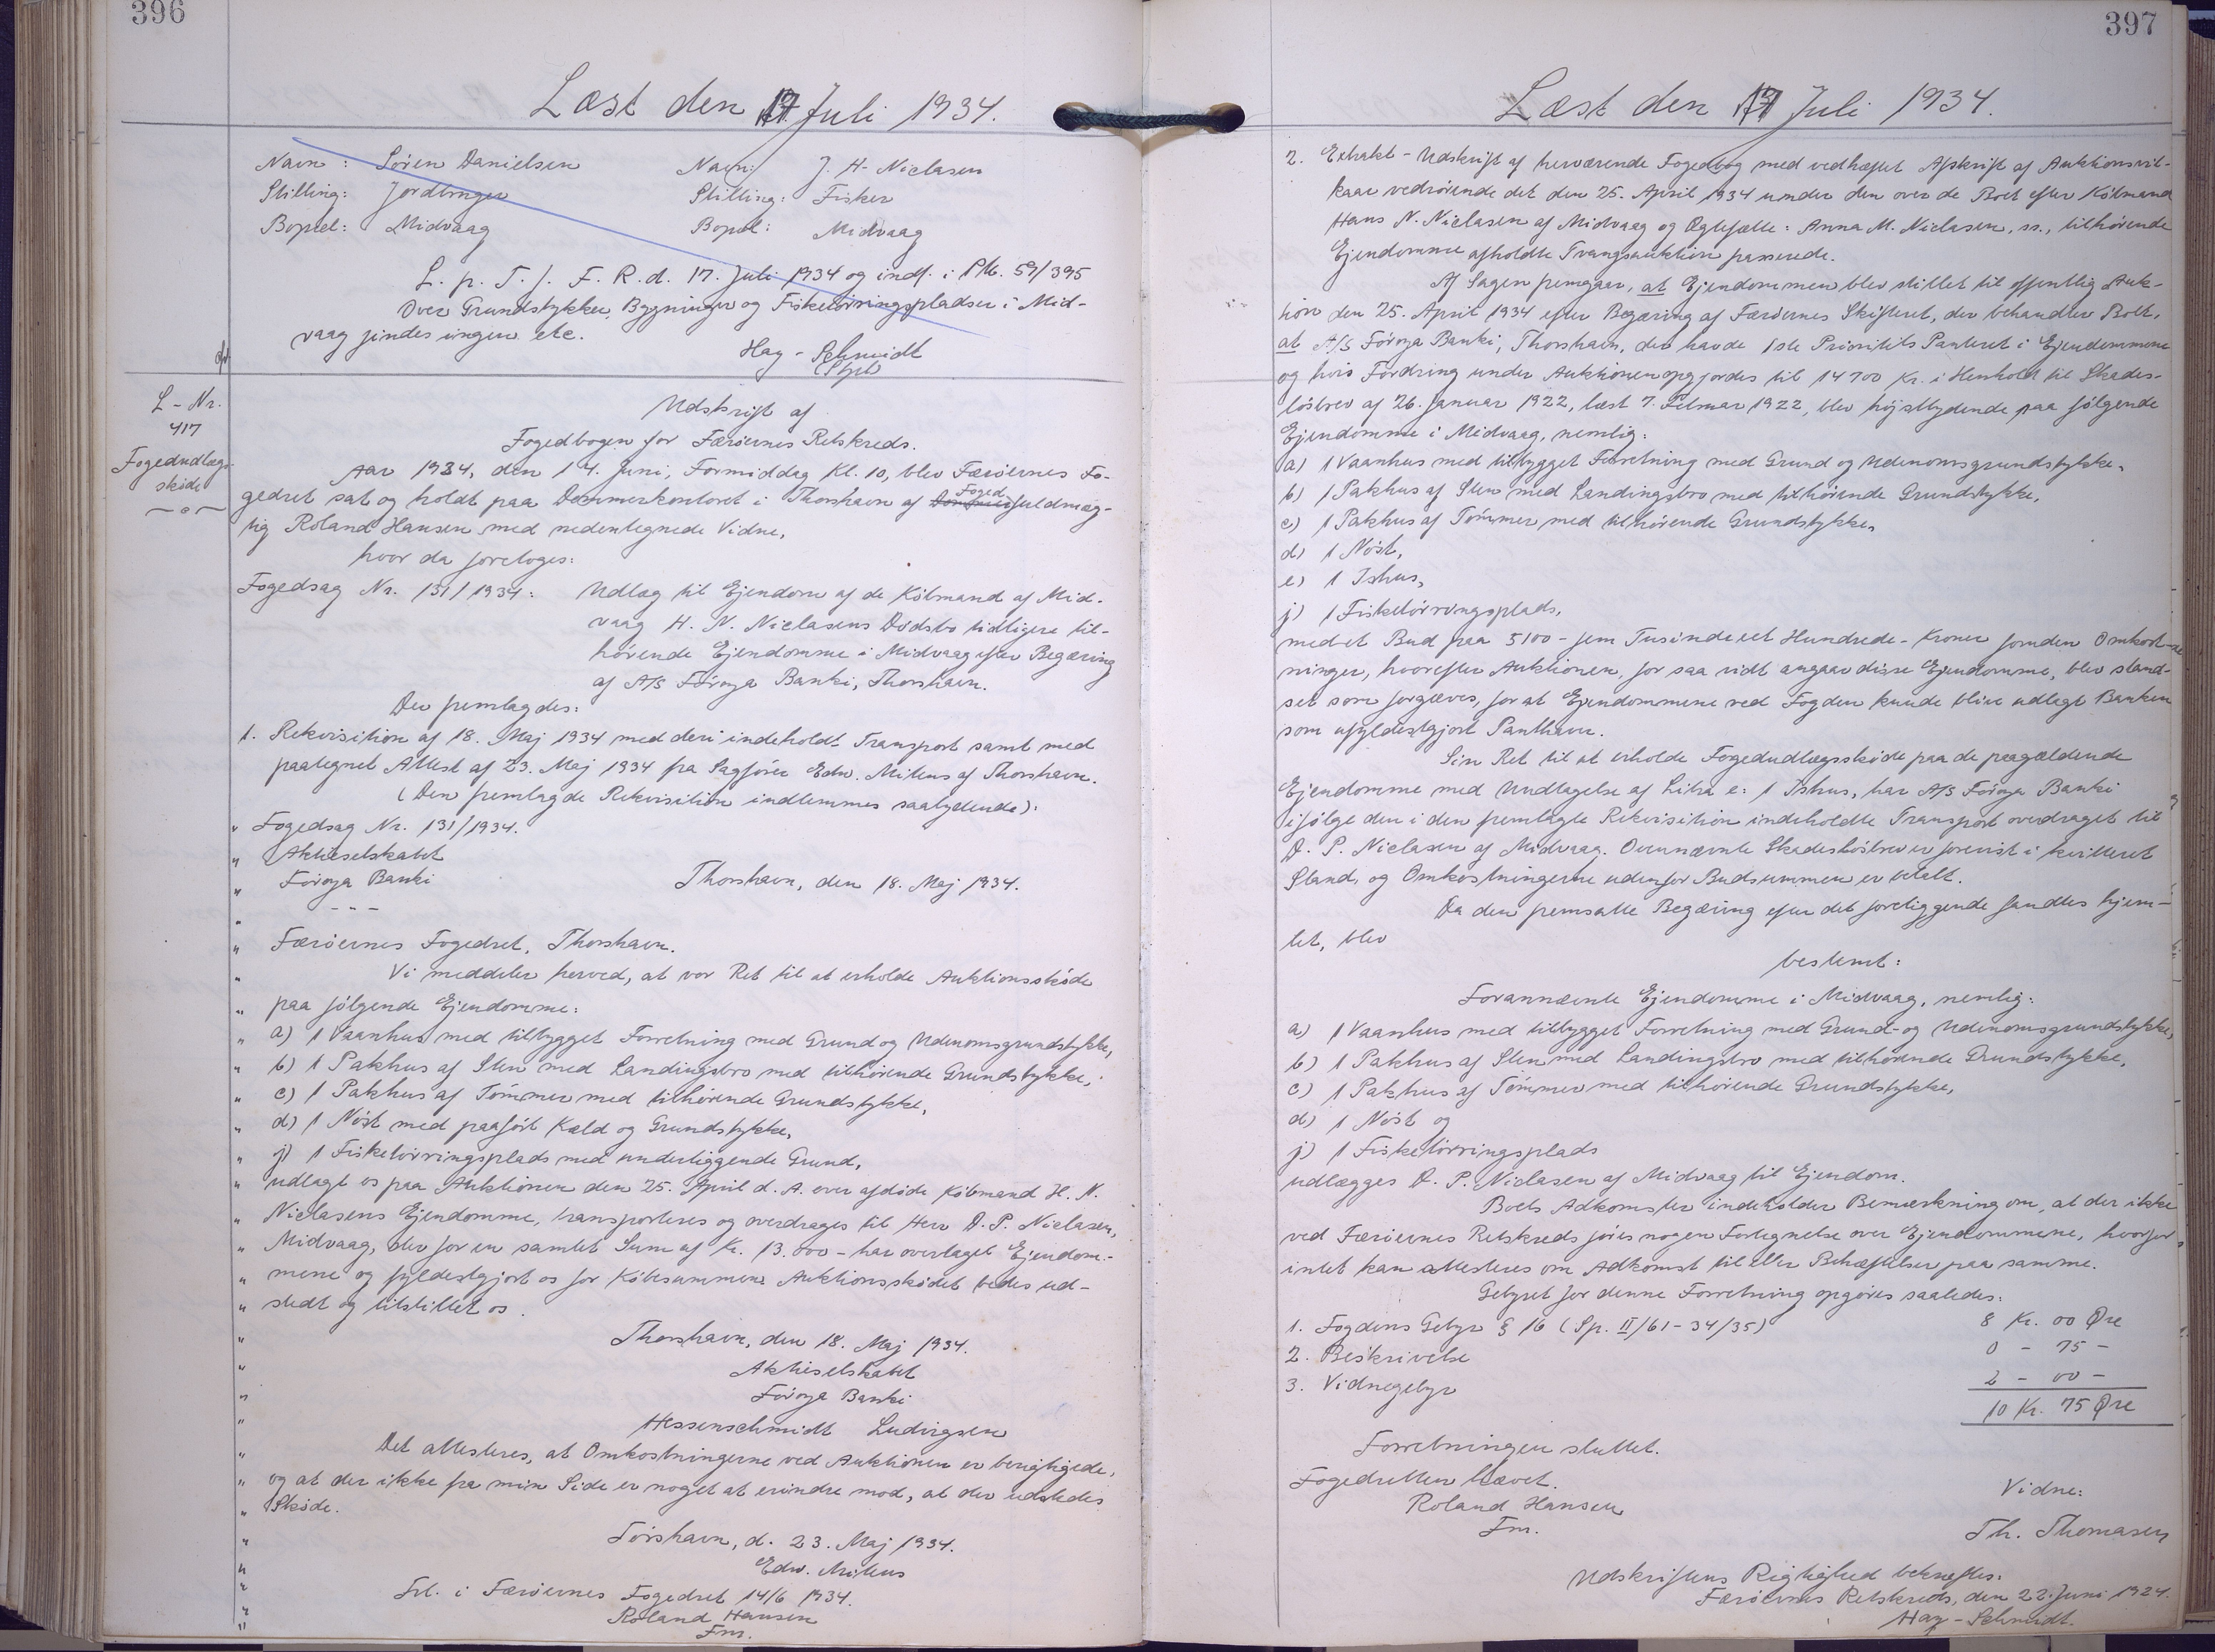 396
Læst den 17 Juli 1934.
Navn: Søren Danielsen Navn: J. H. Niclasen
Stilling: Jordbruger Stilling: Fisker
Bopæl: Midvaag Bopæl: Midvaag
L. p. T. f. F. R. d. 17. Juli 1934 og indf. i Ptb. 59/395
Over Grundstykker, Bygninger og Fisketörringspladser i Mid-
vaag findes ingen etc.
Hay-Schmidt
L-Nr.
417
Fogedudlægs-
skøde
Udskrift af
Fogedbogen for Færöernes Retskreds.
Aar 1934, den 14. Juni, Formiddag Kl. 10, blev Færöernes Fo-
gedret sat og holdt paa Dommerkontoret i Thorshavn af Fogedfuldmæg-
tig Roland Hansen med nedentegnede Vidne,
hvor da foretoges:
Fogedsag Nr. 131/1934: Udlæg til Ejendom af de Köbmand af Mid-
vaag H. N. Niclasens Dödsbo tidligere til-
hörende Ejendomme i Midvaag efter Begæring
af A/S Föroya Banki, Thorshavn.
Der fremlagdes:
1. Rekvisition af 18. Maj 1934 med deri indeholdt Transport samt med
paategnet Attest af 23. Maj 1934 fra Sagförer Edw. Mitens af Thorshavn.
(Den fremlagde Rekvisition indlemmes saalydende):
" Fogedsag Nr. 131/1934.
" Aktieselskabet
" Föroya Banki Thorshavn, den 18. Maj 1934.
" - - -
" Færöernes Fogedret, Thorshavn.
" Vi meddeler herved, at vor Ret til at erholde Auktionsskøde
" paa følgende Ejendomme:
" a) 1 Vaanhus med tilbygget Forretning med Grund og Udenomsgrundstykke,
" b) 1 Pakhus af Sten med Landingsbro med tilhörende Grundstykke,
" c) 1 Pakhus af Tömmer med tilhörende Grundstykke,
" d) 1 Nöst med paaført Kæld og Grundstykke,
" f) 1 Fisketörringsplads med underliggende Grund,
" udlagt os paa Auktionen den 25. April d. A. over afdöde Köbmand H. N.
" Niclasens Ejendomme, transporteres og overdrages til Herr D. P. Niclasen,
" Midvaag, der for en samlet Sum af Kr. 13.000 - har overtaget Ejendom-
" mene og fyldestgjort os for Köbesummen. Auktionsskødet bedes ud-
" stedt og tilstillet os.
" Thorshavn, den 18. Maj 1934.
" Aktieselskabet
" Föroya Banki
" Hessenschmidt Ludvigsen
" Det attesteres, at Omkostningerne ved Auktionen er berigtigede,
" og at der ikke fra min Side er noget at erindre mod, at der udstedes
" Skøde.
" Tórshavn, d. 23. Maj 1934.
" Edw. Mitens
" Frl. i Færöernes Fogedret 14/6 1934.
" Roland Hansen
" Fm.
397
Læst den 17 Juli 1934.
2. Extrakt-Udskrift af herværende Fogedbog med vedhæftet Afskrift af Auktionsvil-
kaar vedrörende det den 25. April 1934 under den over de Boet efter Köbmand
Hans N. Niclasen af Midvaag og Ægtefælle: Anna M. Niclasen, ss., tilhörende
Ejendomme afholdte Tvangsauktion passerede.
Af Sagen fremgaar, at Ejendommen blev stillet til offentlig Auk-
tion den 25. April 1934 efter Begæring af Færöernes Skifteret, der behandler Boet,
at A/S Föroya Banki, Thorshavn, der havde 1ste Prioritets Panteret i Ejendommene
og hvis Fordring under Auktionen opgjordes til 14700 Kr. i Henhold til Skades-
lösbrev af 26. Januar 1922, læst 7. Februar 1922, blev höjstbydende paa følgende
Ejendomme i Midvaag, nemlig:
a) 1 Vaanhus med tilbygget Forretning med Grund og Udenomsgrundstykke,
b) 1 Pakhus af Sten med Landingsbro med tilhörende Grundstykke,
c) 1 Pakhus af Tömmer med tilhörende Grundstykke,
d) 1 Nöst,
e) 1 Ishus,
f) 1 Fisketörringsplads,
med et Bud paa 5100 - fem Tusinde eet Hundrede - Kroner foruden Omkost-
ninger, hvorefter Auktionen, for saa vidt angaar disse Ejendomme, blev stand-
set som forgæves, for at Ejendommene ved Fogden kunde blive udlagt Banken
som ufyldestgjort Panthaver.
Sin Ret til at erholde Fogedudlægsskøde paa de paagældende
Ejendomme med Undtagelse af Litra e: 1 Ishus, har A/S Föroya Banki
ifølge den i den fremlagte Rekvisition indeholdte Transport overdraget til
D. P. Niclasen af Midvaag. Ovennævnte Skadeslösbrev er forevist i kvitteret
Stand, og Omkostningerne udenfor Budsummen er betalt.
Da den fremsatte Begæring efter det foreliggende fandtes hjem-
let, blev
bestemt:
Forannævnte Ejendomme i Midvaag, nemlig:
a) 1 Vaanhus med tilbygget Forretning med Grund- og Udenomsgrundstykke,
b) 1 Pakhus af Sten med Landingsbro med tilhörende Grundstykke,
c) 1 Pakhus af Tömmer med tilhörende Grundstykke,
d) 1 Nöst og
f) 1 Fisketörringsplads
udlægges D. P. Niclasen af Midvaag til Ejendom.
Boets Adkomster indeholder Bemærkning om, at der ikke
ved Færöernes Retskreds føres nogen Fortegnelse over Ejendommene, hvorfor
intet kan attesteres om Adkomst til eller Behæftelser paa samme.
Gebyret for denne Forretning opgöres saaledes:
1. Fogdens Gebyr § 16 (Sp. II/61-34/35) 8 Kr. 00 Øre
2. Beskrivelse 0 - 75 -
3. Vidnegebyr 2 - 00 -
10 Kr. 75 Øre
Forretningen sluttet.
Fogedretten hævet.
Roland Hansen Vidne:
Fm. Th. Thomasen
Udskriftens Rigtighed bekræftes:
Færöernes Retskreds, den 22. Juni 1934.
Hay-Schmidt.